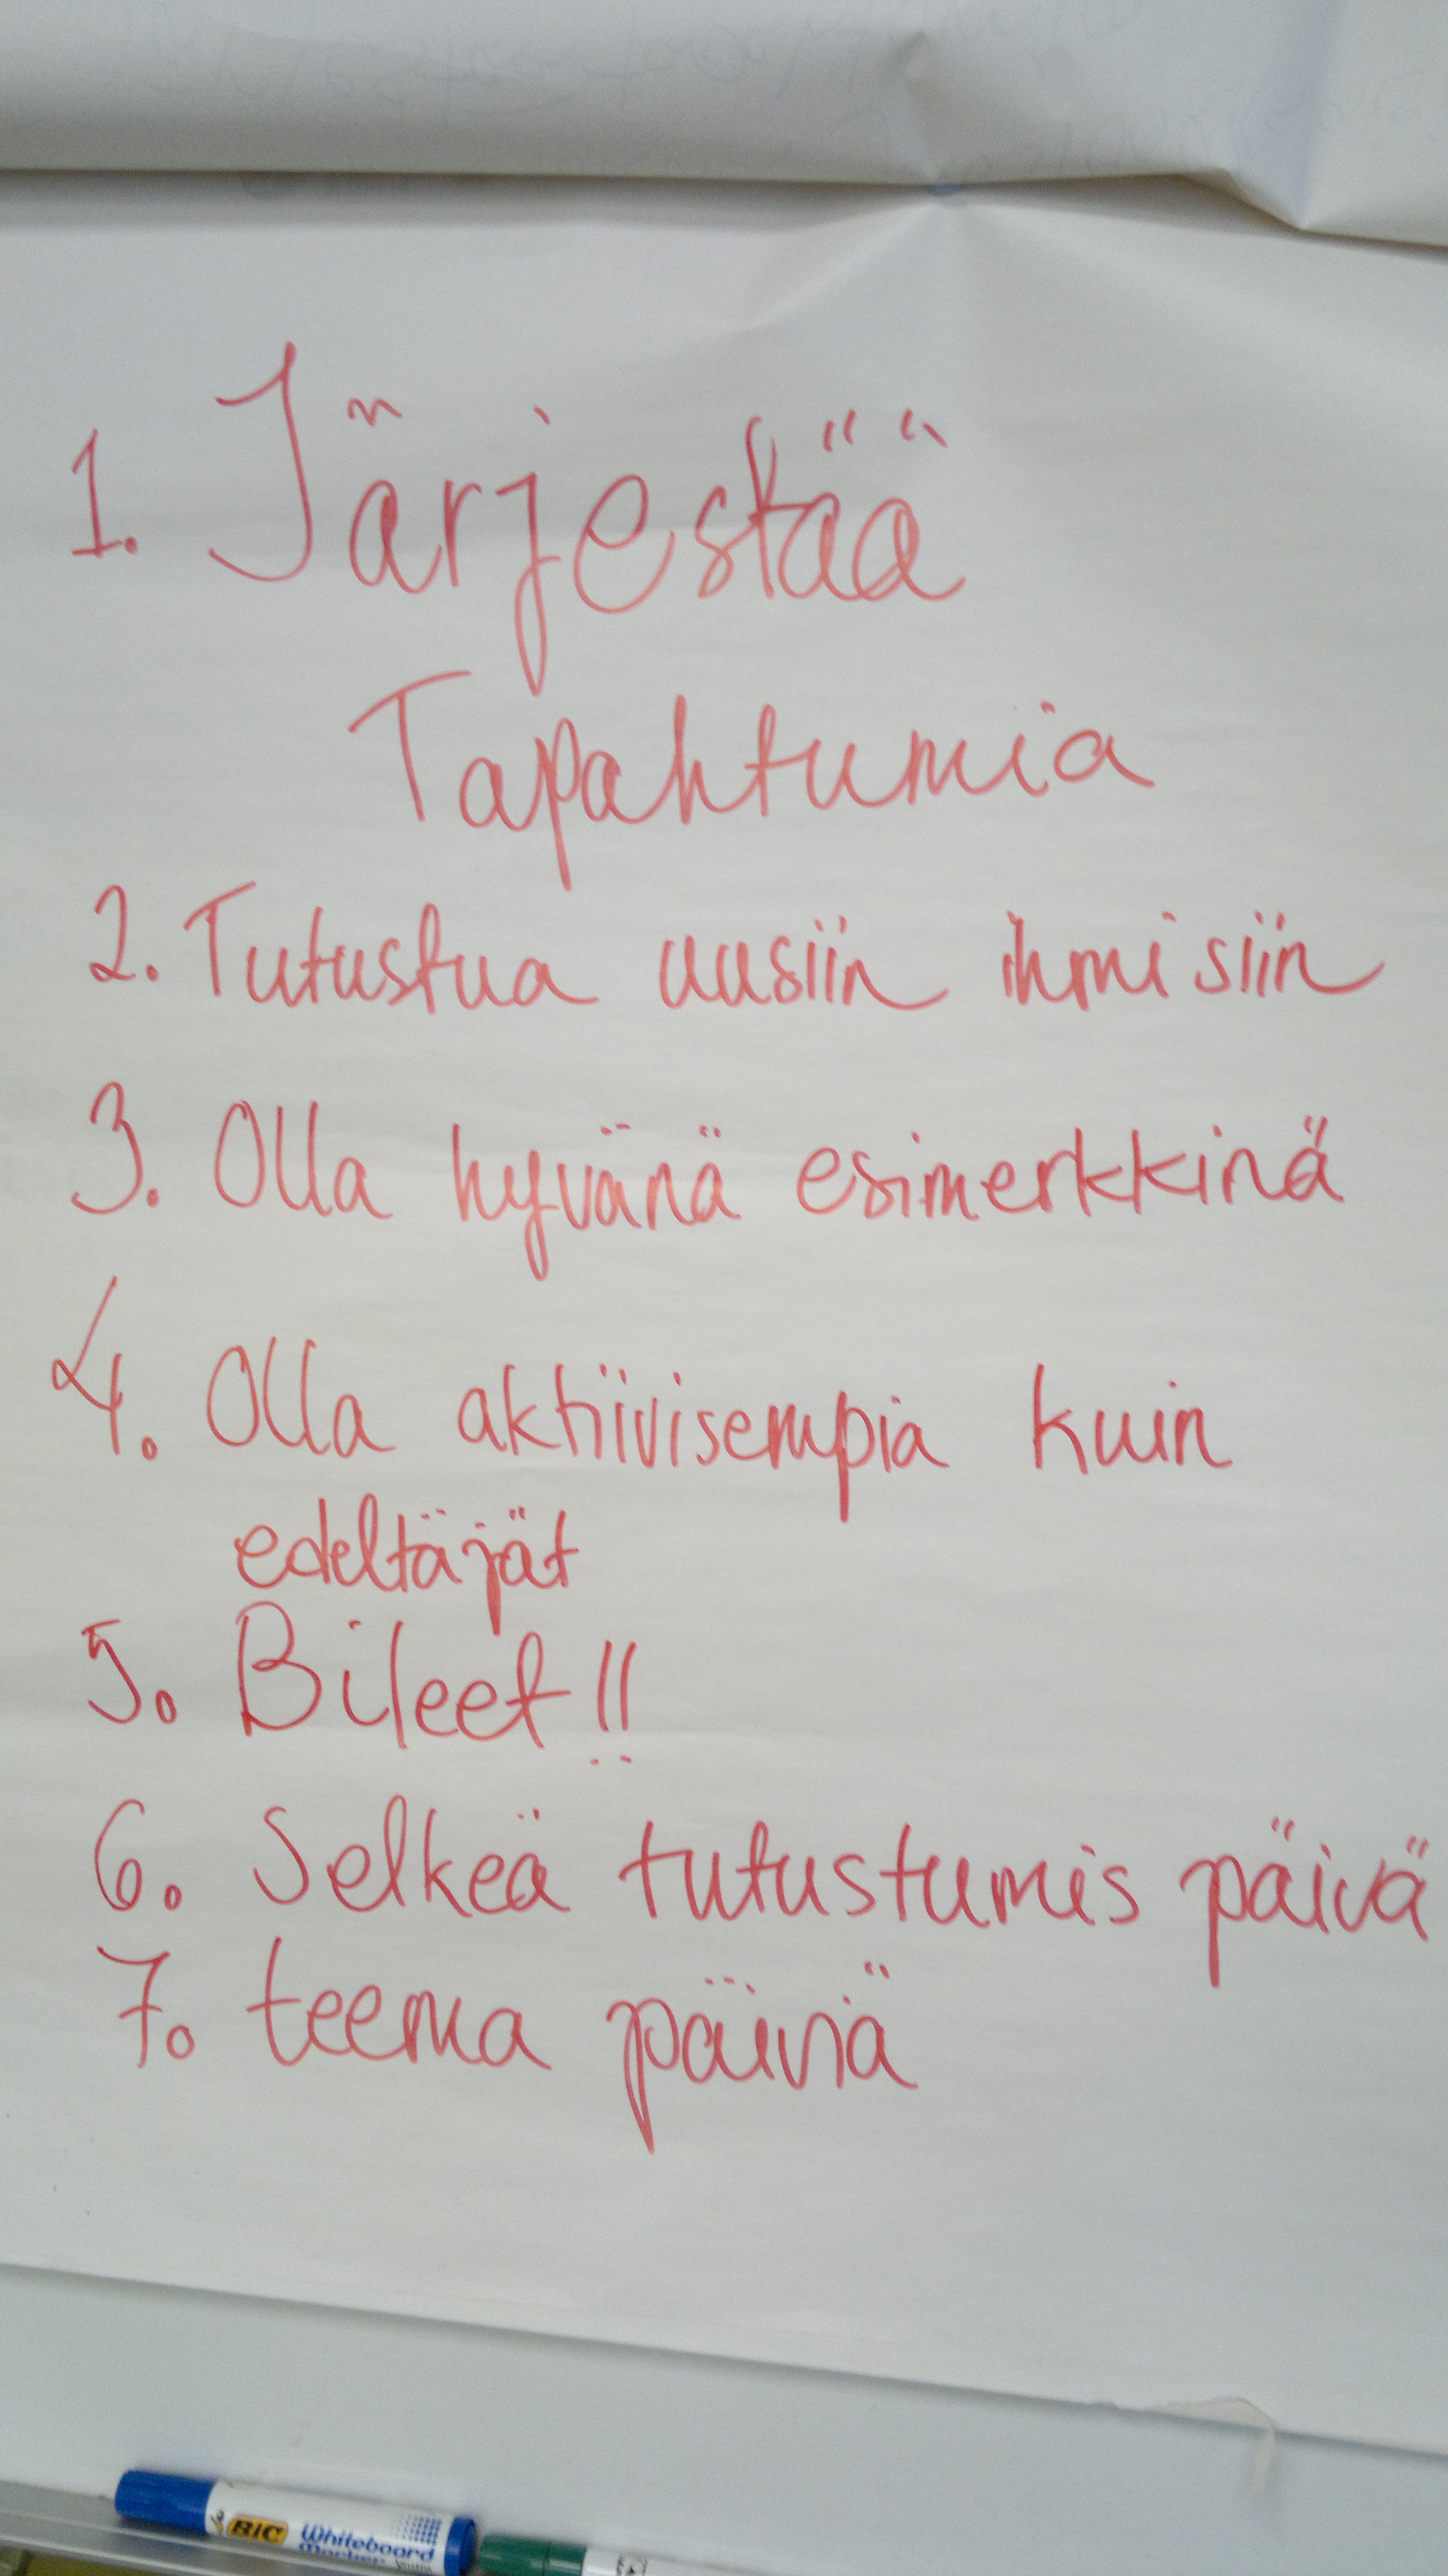 1. Järjestää
Tapahtumia
2. Tutustua uusiin ihmisiin
3. Olla hyvänä esimerkkinä
4. Olla aktiivisempia kuin
edeltäjät
5. Bileet!!
6. Selkeä tutustumis päivä
7. teema päiviä
BIC Whiteboard
Marker